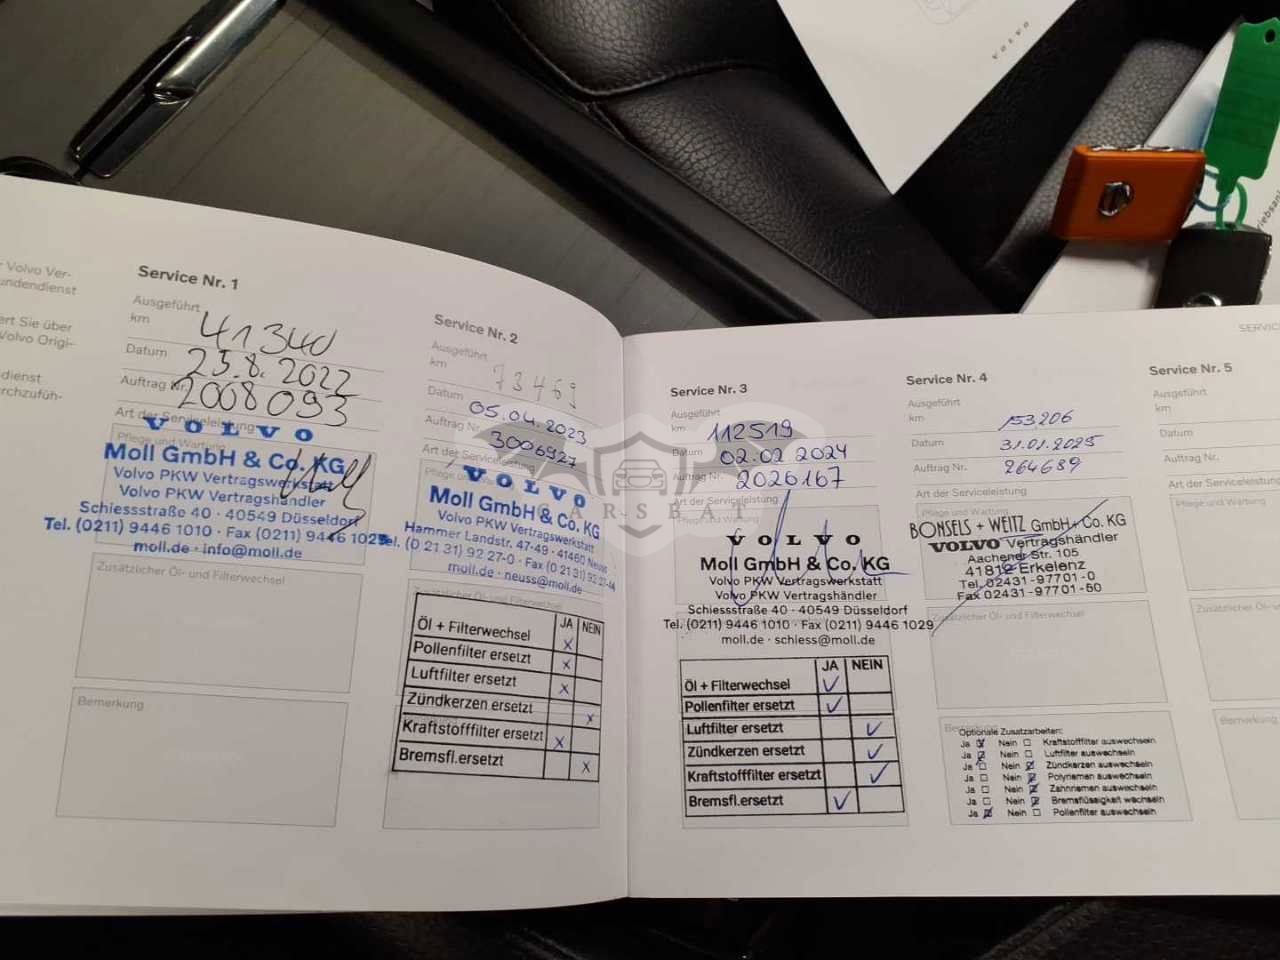 VOLVO
r Volvo Ver-
undendienst
ert Sie über
Volvo Origi-
dienst
rchzufüh-
Service Nr. 1
Ausgeführt
km 41340
Datum 23.8.2022
Auftrag Nr. 2008093
Art der Serviceleistung
Pflege und Wartung
VOLVO
Moll GmbH & Co. KG
Volvo PKW Vertragswerkstatt
Volvo PKW Vertragshändler
Schiessstraße 40 · 40549 Düsseldorf
Tel. (0211) 9446 1010 · Fax (0211) 9446 1029
moll.de · info@moll.de
Zusätzlicher Öl- und Filterwechsel
Bemerkung
Service Nr. 2
Ausgeführt
km 73469
Datum 05.04.2023
Auftrag Nr. 3006927
Art der Serviceleistung
Pflege und Wartung
VOLVO
Moll GmbH & Co. KG
Volvo PKW Vertragswerkstatt
Hammer Landstr. 47-49 · 41460 Neuss
Tel. (0 21 31) 92 27-0 · Fax (0 21 31) 92 27-44
moll.de · neuss@moll.de
Zusätzlicher Öl- und Filterwechsel
JA NEIN
Öl + Filterwechsel X
Pollenfilter ersetzt X
Luftfilter ersetzt X
Zündkerzen ersetzt X
Kraftstofffilter ersetzt X
Bremsfl.ersetzt X
CARSBAT
SERVICE
Service Nr. 3
Ausgeführt
km 112519
Datum 02.02.2024
Auftrag Nr. 2026167
Art der Serviceleistung
Pflege und Wartung
VOLVO
Moll GmbH & Co. KG
Volvo PKW Vertragswerkstatt
Volvo PKW Vertragshändler
Schiessstraße 40 · 40549 Düsseldorf
Tel. (0211) 9446 1010 · Fax (0211) 9446 1029
moll.de · schiess@moll.de
JA NEIN
Öl + Filterwechsel ✓
Pollenfilter ersetzt ✓
Luftfilter ersetzt ✓
Zündkerzen ersetzt ✓
Kraftstofffilter ersetzt ✓
Bremsfl.ersetzt ✓
Service Nr. 4
Ausgeführt
km 153206
Datum 31.01.2025
Auftrag Nr. 264689
Art der Serviceleistung
Pflege und Wartung
BONSELS + WEITZ GmbH + Co. KG
VOLVO Vertragshändler
Aachener Str. 105
41812 Erkelenz
Tel. 02431-97701-0
Fax 02431-97701-50
Zusätzlicher Öl- und Filterwechsel
Bemerkung
Optionale Zusatzarbeiten:
Ja ☑ Nein ☐ Kraftstofffilter auswechseln
Ja ☑ Nein ☐ Luftfilter auswechseln
Ja ☐ Nein ☑ Zündkerzen auswechseln
Ja ☐ Nein ☑ Polyriemen auswechseln
Ja ☐ Nein ☑ Zahnriemen auswechseln
Ja ☐ Nein ☑ Bremsflüssigkeit wechseln
Ja ☑ Nein ☐ Pollenfilter auswechseln
Service Nr. 5
Ausgeführt
km
Datum
Auftrag Nr.
Art der Serviceleistung
Pflege und Wartung
Zusätzlicher Öl- und
Bemerkung